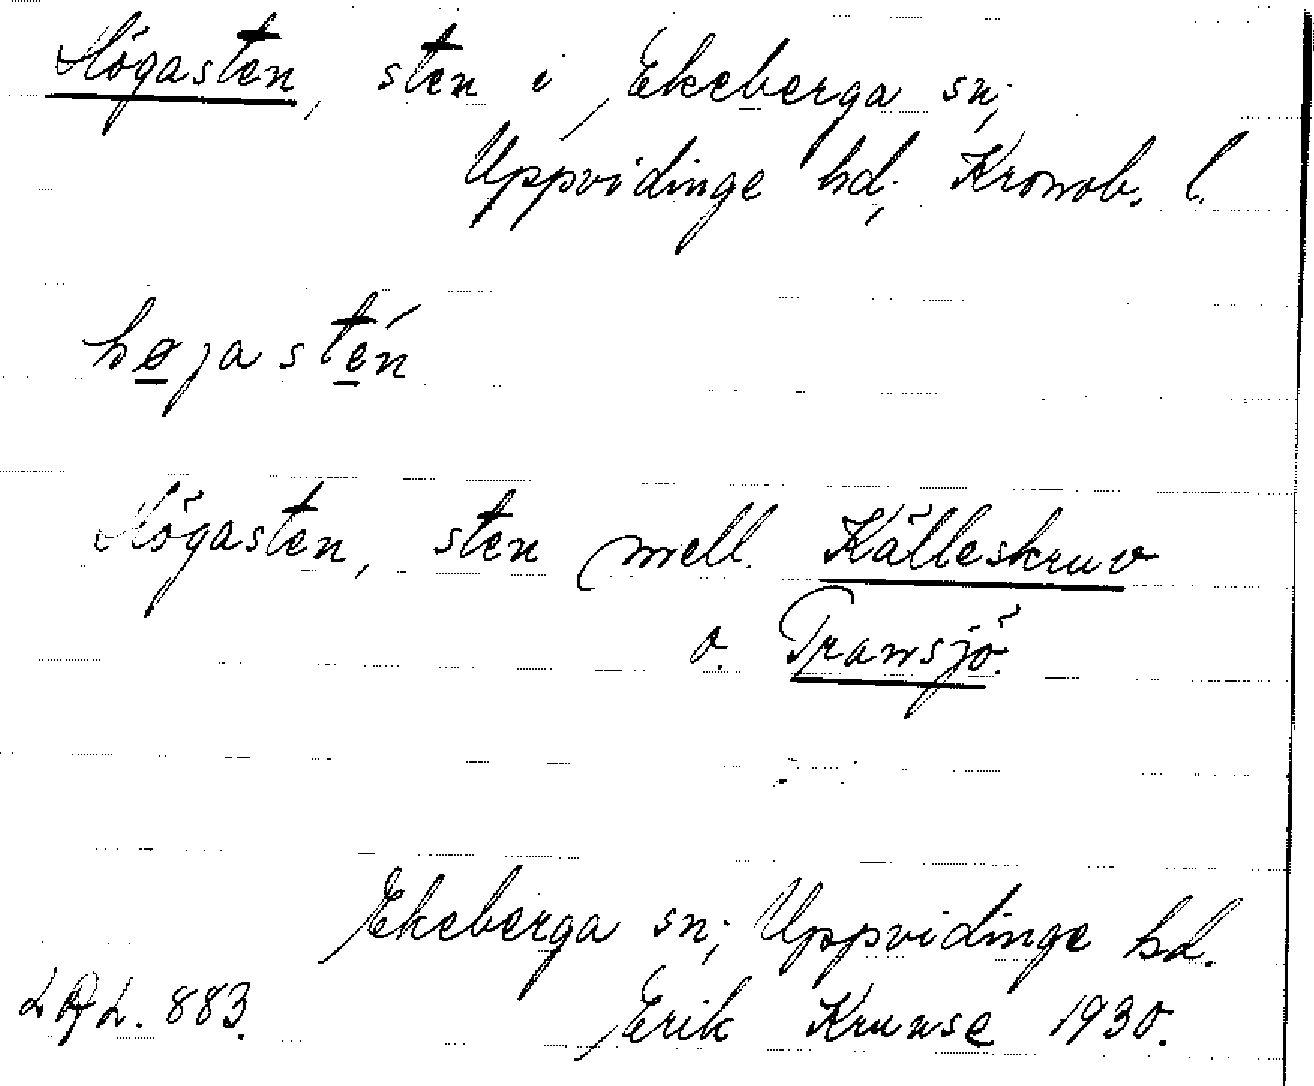 Högasten, sten i Ekeberga sn,
Uppvidinge hd, Kronob. l.
højastén
Högasten, sten mell. Källeskruv
o. Transjö.
Ekeberga sn, Uppvidinge hd.
883. Erik 1930.